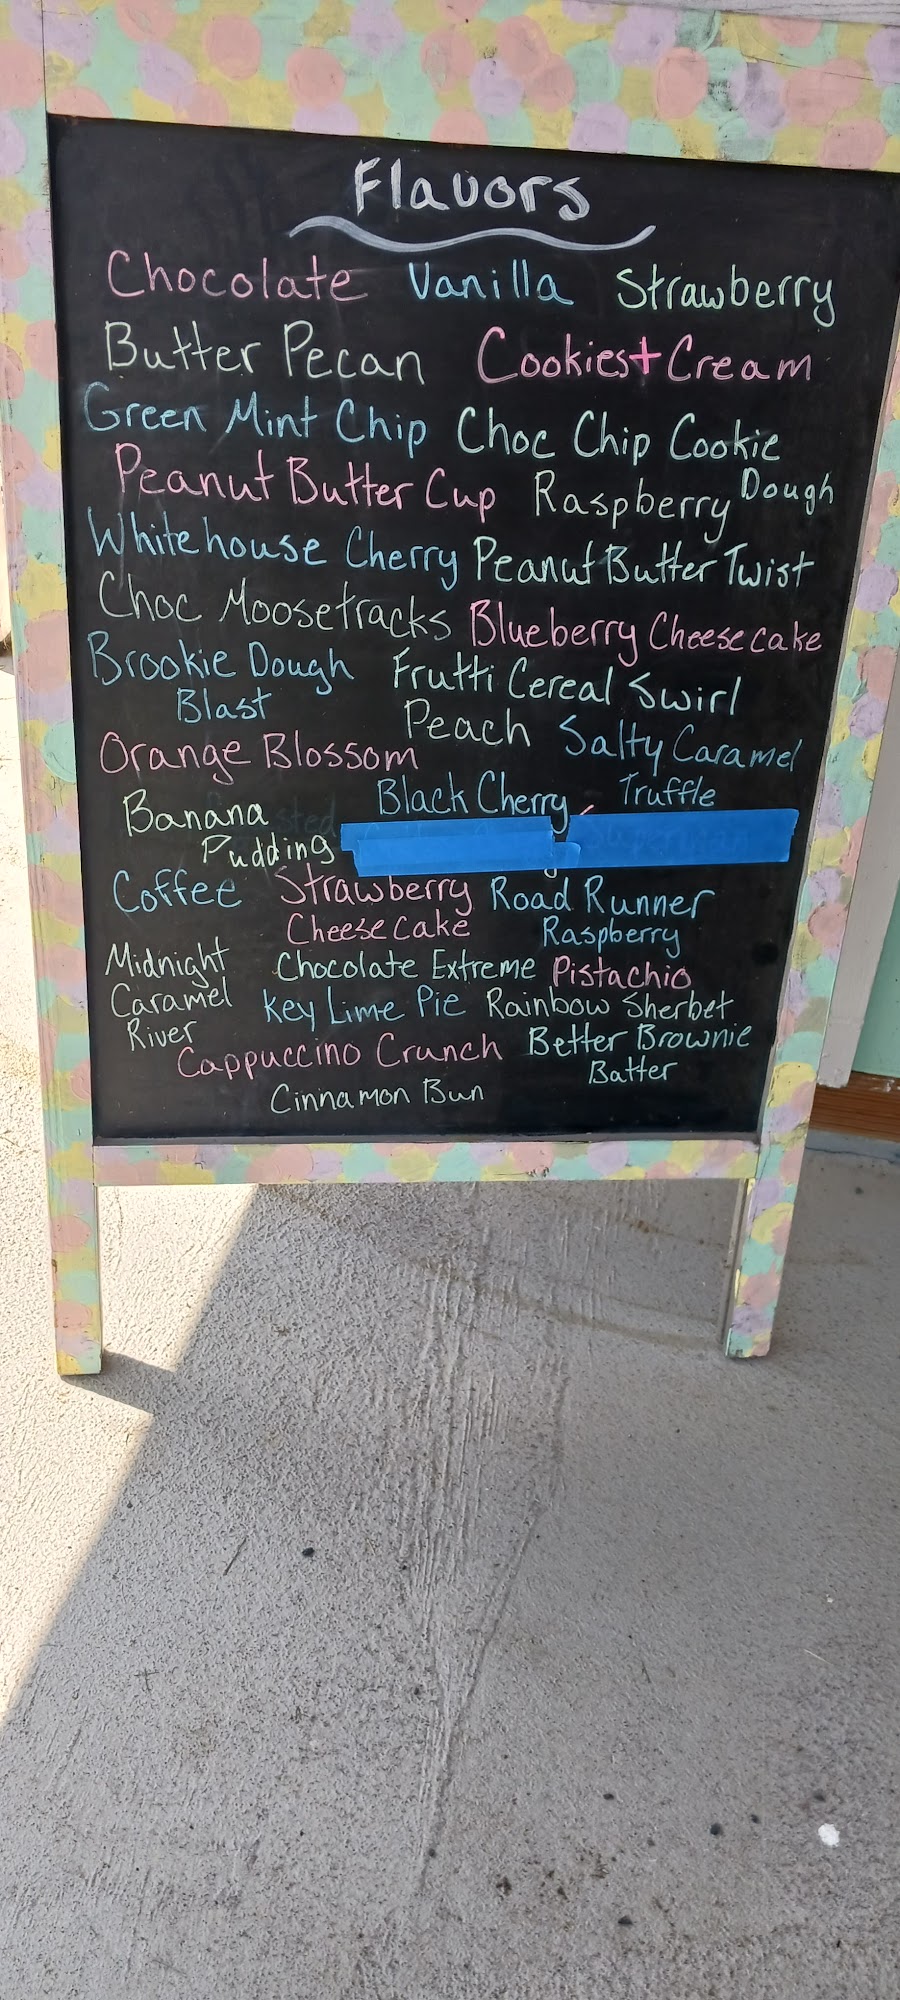 Flavors
Chocolate Vanilla Strawberry
Butter Pecan Cookies+Cream
Green Mint Chip Choc Chip Cookie Dough
Peanut Butter Cup Raspberry
Whitehouse Cherry Peanut Butter Twist
Choc Moosetracks Blueberry Cheesecake
Brookie Dough Blast Frutti Cereal Swirl
Orange Blossom Peach Salty Caramel Truffle
Banana Pudding Black Cherry
Coffee Strawberry Cheesecake Road Runner Raspberry
Midnight Caramel River Chocolate Extreme Pistachio
Key Lime Pie Rainbow Sherbet
Cappuccino Crunch Better Brownie Batter
Cinnamon Bun